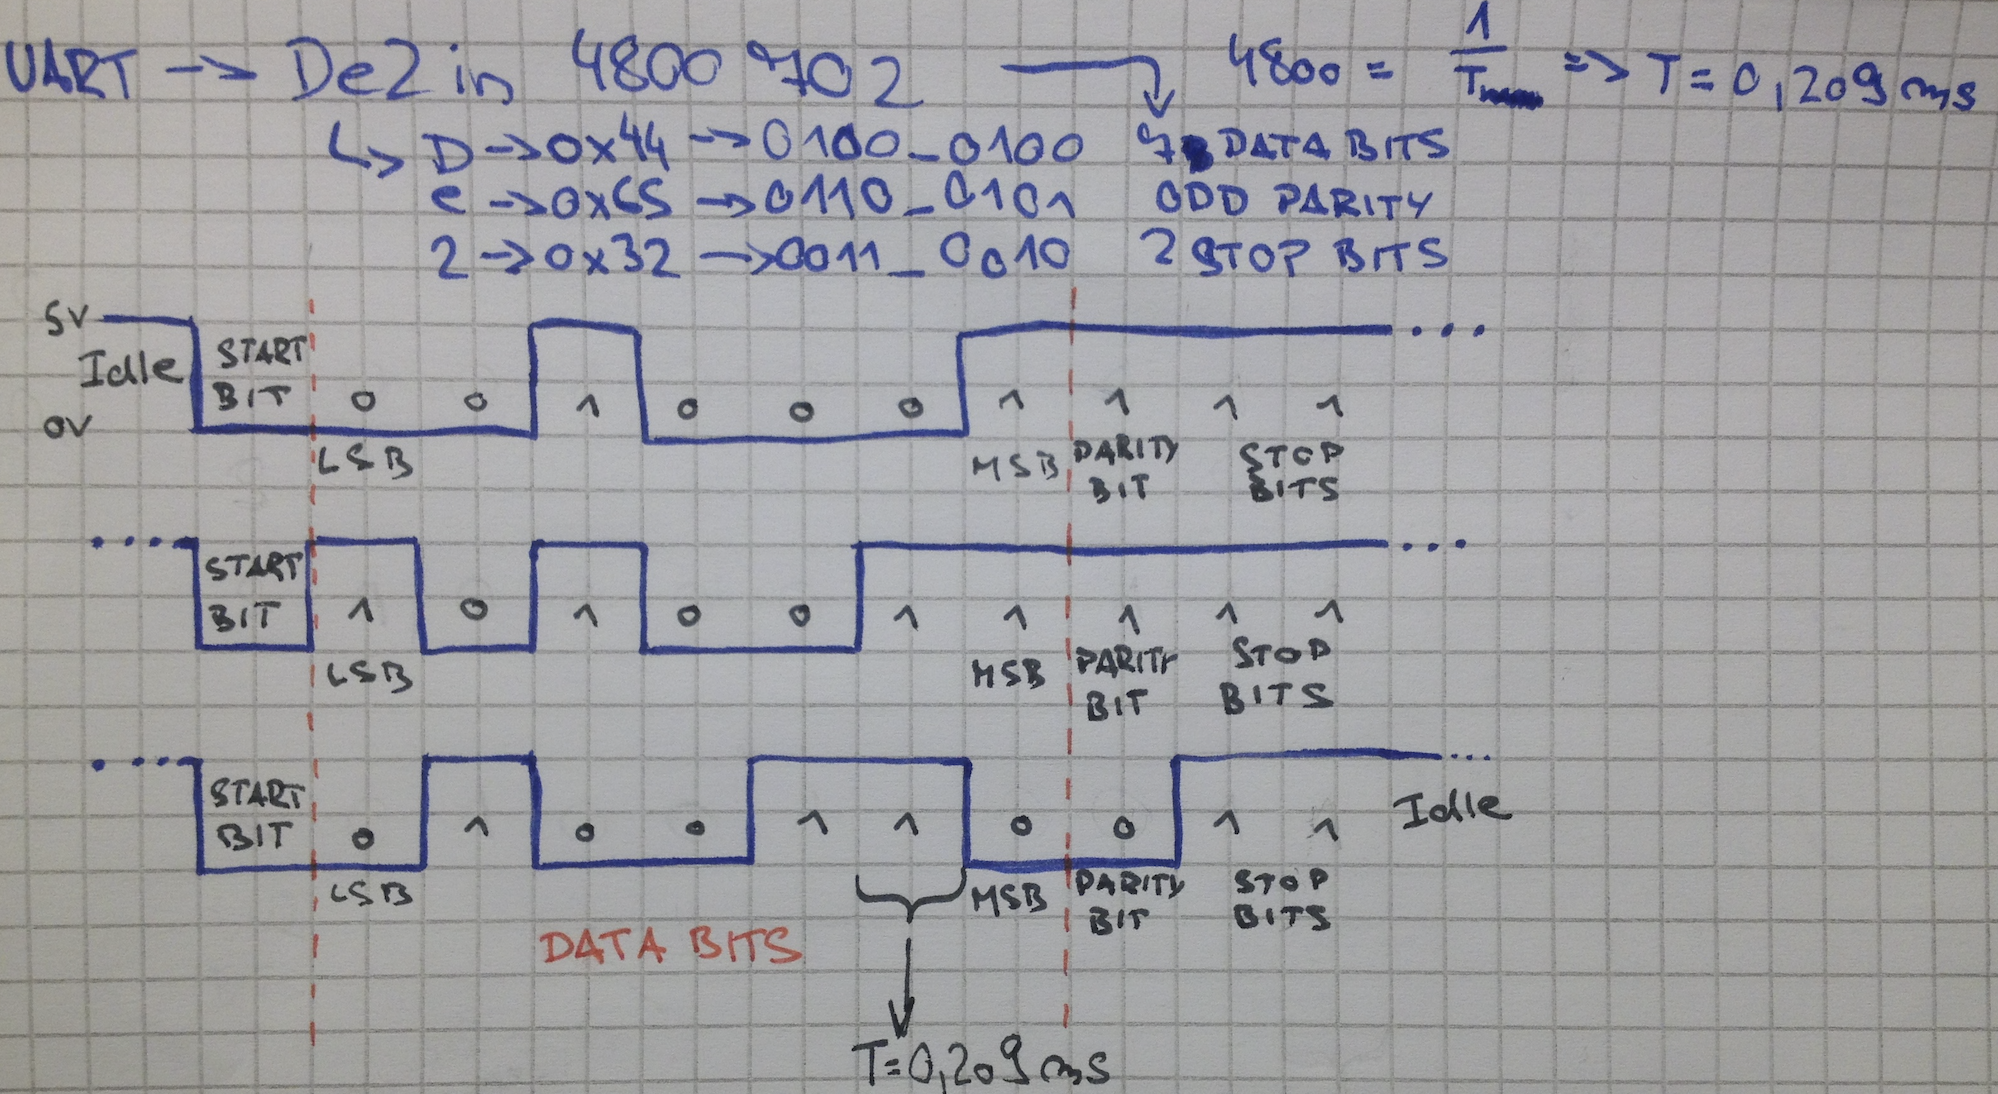 UART -> De2 in 4800 7O2 -> 4800 = 1/T => T = 0,209 ms
↳ D -> 0x44 -> 0100_0100 7 DATA BITS
e -> 0x65 -> 0110_0101 ODD PARITY
2 -> 0x32 -> 0011_0010 2 STOP BITS
5V
Idle START BIT
0V
0 0 1 0 0 0 1 1 1 1
LSB MSB PARITY BIT STOP BITS
.... START BIT 1 0 1 0 0 1 1 1 1 1 ...
LSB MSB PARITY BIT STOP BITS
.... START BIT 0 1 0 0 1 1 0 0 1 1 Idle ...
LSB MSB PARITY BIT STOP BITS
DATA BITS
T=0,209 ms